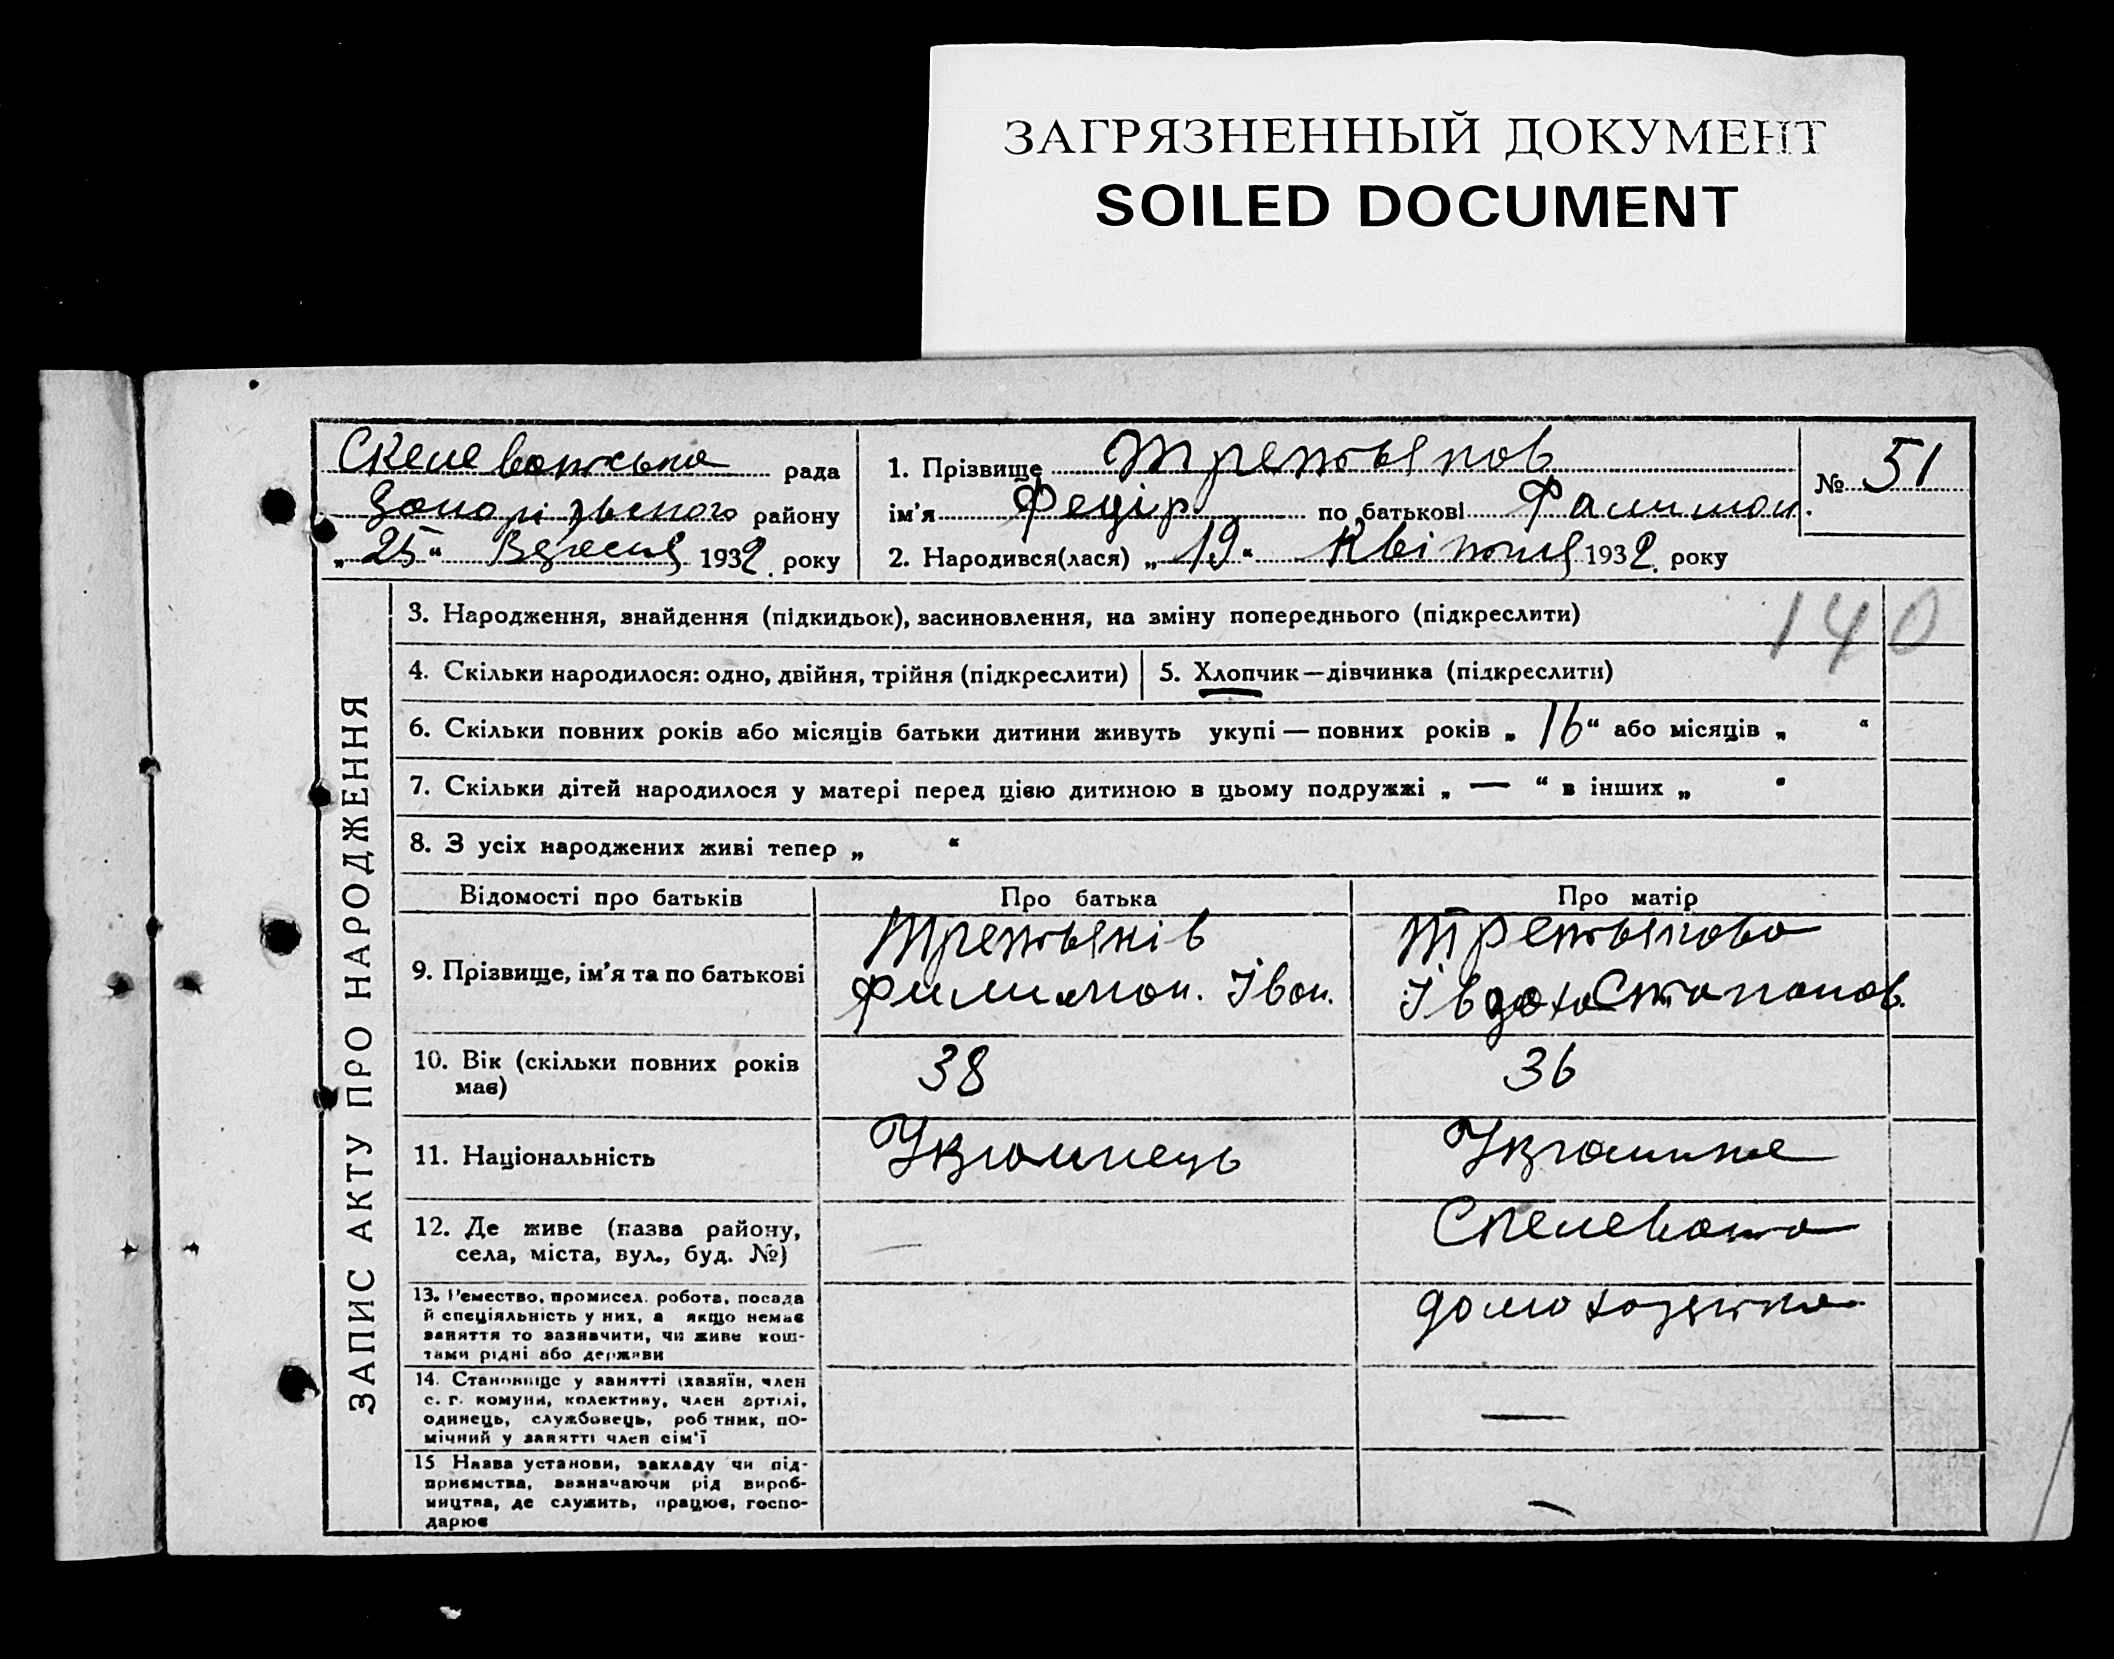 ЗАГРЯЗНЕННЫЙ ДОКУМЕНТ
SOILED DOCUMENT
Скелеватська рада
Запорізьского району
„25“ Вересня 1932 року
1. Прізвище Третьяков
ім'я Федір по батькові Филимон.
2. Народився(лася) „19“ Квітня 1932 року
№ 51
140
ЗАПИС АКТУ ПРО НАРОДЖЕННЯ
3. Народження, знайдення (підкидьок), засиновлення, на зміну попереднього (підкреслити)
4. Скільки народилося: одно, двійня, трійня (підкреслити)
5. Хлопчик—дівчинка (підкреслити)
6. Скільки повних років або місяців батьки дитини живуть укупі — повних років „16“ або місяців „ “
7. Скільки дітей народилося у матері перед цією дитиною в цьому подружжі „ — “ в інших „ “
8. З усіх народжених живі тепер „ “
Відомості про батьків
Про батька
Про матір
9. Прізвище, ім'я та по батькові
Третьяків
Филимон. Іван.
Третьякова
Івдоха Степанов.
10. Вік (скільки повних років
має)
38
36
11. Національність
Українець
Українка
12. Де живе (назва району,
села, міста, вул., буд. №)
—
Скелеватка
13. Ремество, промисел, робота, посада
й спеціяльність у них, а якщо немає
заняття то зазначити, чи живе кош-
тами рідні або держави
домохозяйка
14. Становище у занятті (хазяїн, член
с. г. комуни, колективу, член артілі,
одинець, службовець, робітник, по-
мічний у занятті член сім'ї
—
15 Назва установи, закладу чи під-
приємства, зазначаючи рід вироб-
ництва, де служить, працює, госпо-
дарює
—